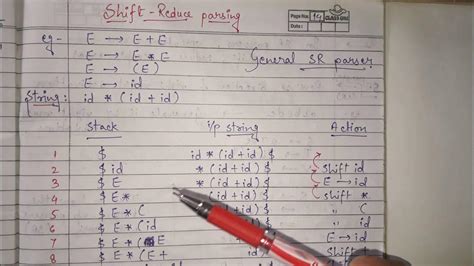 Shift-Reduce parsing
Page No. 19
Date:
CLASS ONE
eg- E → E + E
E → E * E
E → (E)
General SR parser
E → id
String: id * (id + id)
Stack i/p string Action
1 $ id * (id + id) $
2 $ id * (id + id) $ Shift id
3 $ E * (id + id) $ E → id
4 $ E * (id + id) $ shift *
5 $ E * ( id + id) $ " (
6 $ E * (id + id) $ " id
7 $ E * (E + id) $ E → id
8 $ E * (E + id) $ Shift +